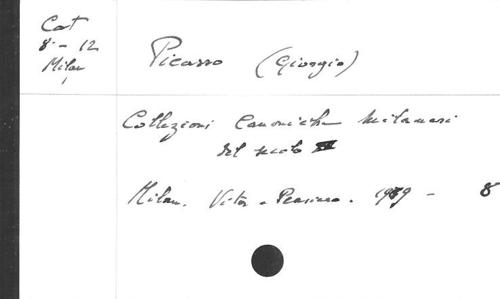 Cat
8 - 12
Milan
Picasso (Giorgio)
Collezioni Canoniche Milanesi
del secolo XII
Milan. Vita e Pensiero. 1969 - 8